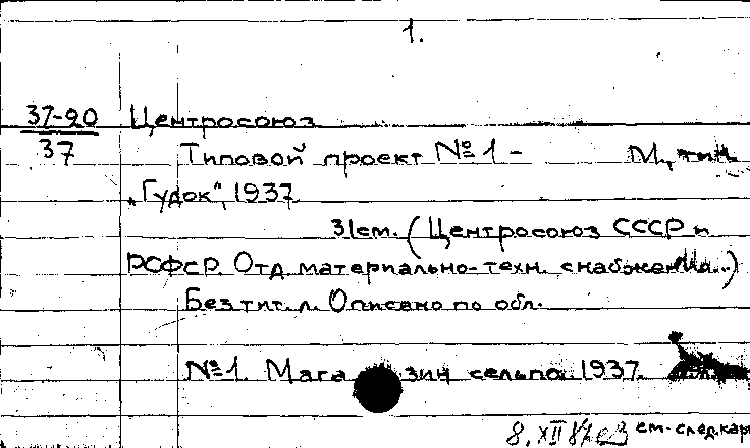 1.
37-90 Центросоюз
37 Типовой проект № 1 - М, тип.
„Гудок", 1937
31см. (Центросоюз СССР и
РСФСР. Отд. материально-техн. снабжения...)
Без тит. л. Описано по обл.
№1. Магазин сельпо. 1937.
8.XII см. след. кар